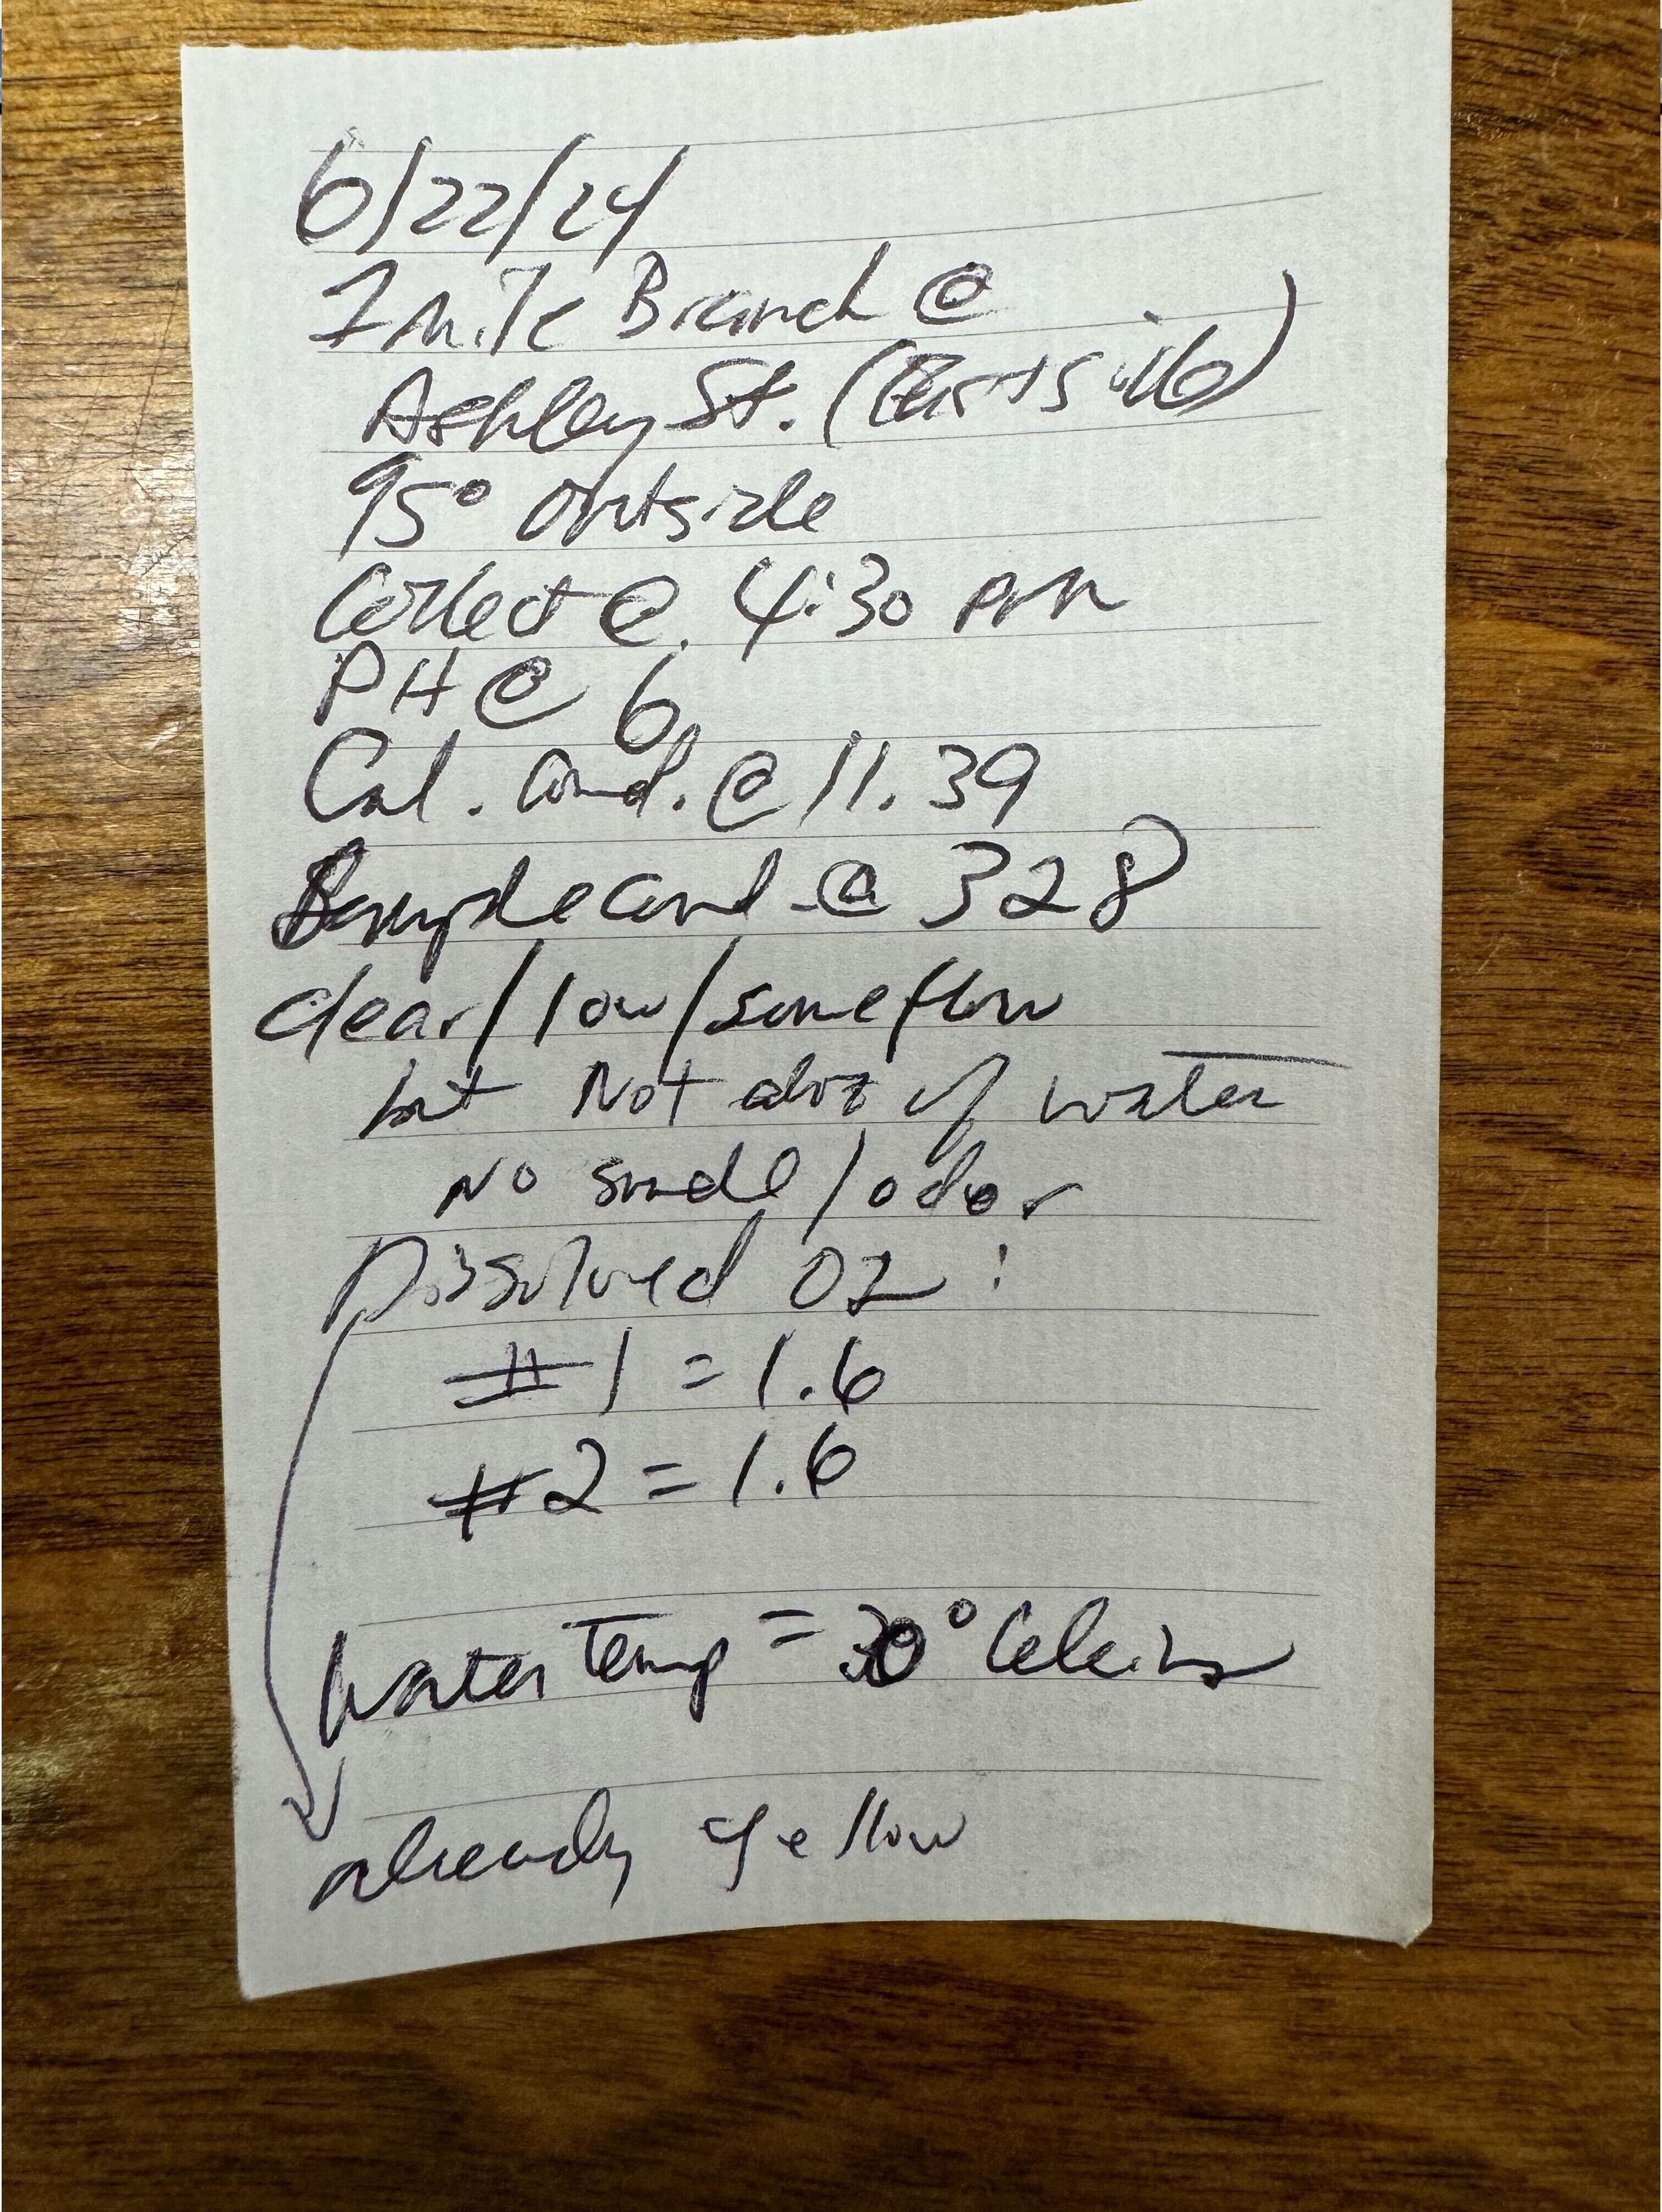 6/22/24
1 Mile Branch @
Ashley St. (East side)
95° outside
Collect @. 4:30 pm
PH @ 6
Cal. Cond. @ 11.39
Sample cond @ 328
clear/low/some flow
but Not alot of water
No smell/odor
Dissolved O2:
#1 = 1.6
#2 = 1.6
Water Temp = 30° Celcius
already yellow